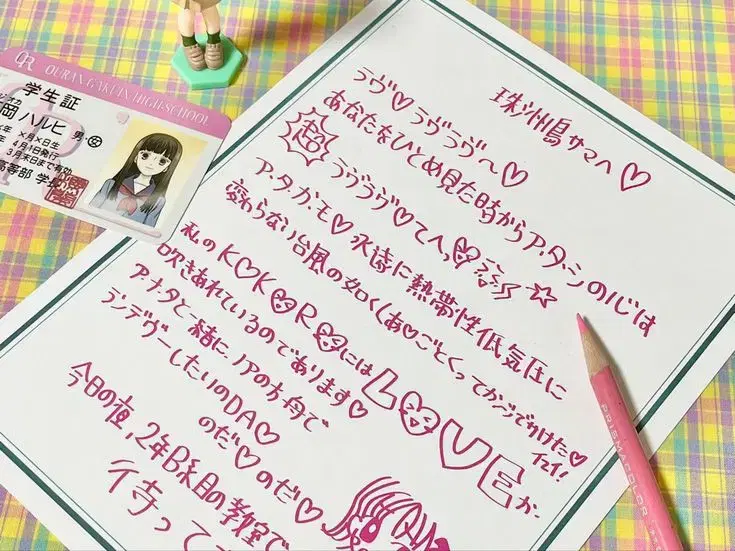 OURAN GAKUIN HIGH SCHOOL
学生証
岡 ハルヒ 男・女
年 ×月×日生
年 4月1日発行
3月末日まで有効
高等部 学長
珠洲島サマへ♡
ラヴ♡ラヴラヴ〜♡
あなたをひとめ見た時からア・タ・シの心は
超 ラヴラヴ♡てへっ
ア・タ・ガ・モ♡永遠に熱帯性低気圧に
変わらない台風の如く(あ♡ごとくってカンジでかけた♡イエイ!
私のKOKOROにはLOVEが
吹きあれているのであります♡
ア・ナタと一緒に、ノアの方舟で
ランデヴーしたいのDA♡
のだ♡のだ♡
今日の夜、2年B組の教室で
待って
PRISMACOLOR